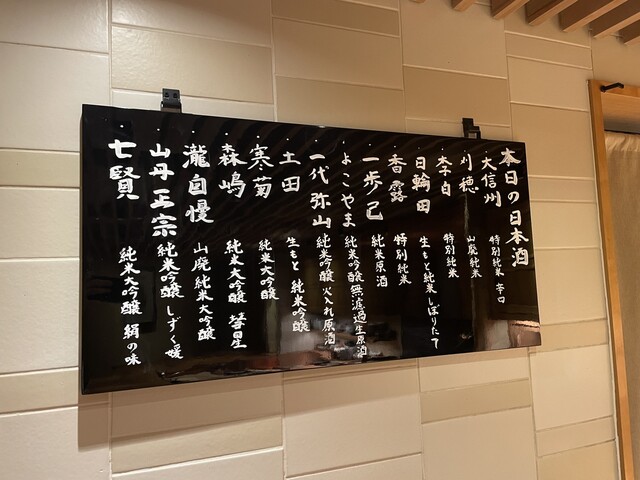 本日の日本酒
・大信州 特別純米 辛口
・刈穂 山廃純米
・李白 特別純米
・日輪田 生もと純米しぼりたて
・香露 特別純米
・一歩己 純米原酒
・よこやま 純米吟醸 無濾過生原酒
・一代弥山 純米吟醸 火入れ原酒
・土田 生もと 純米吟醸
・寒菊 純米大吟醸
・森嶋 純米大吟醸 彗星
・瀧自慢 山廃 純米大吟醸
・山丹正宗 純米吟醸 しずく媛
・七賢 純米大吟醸 絹の味